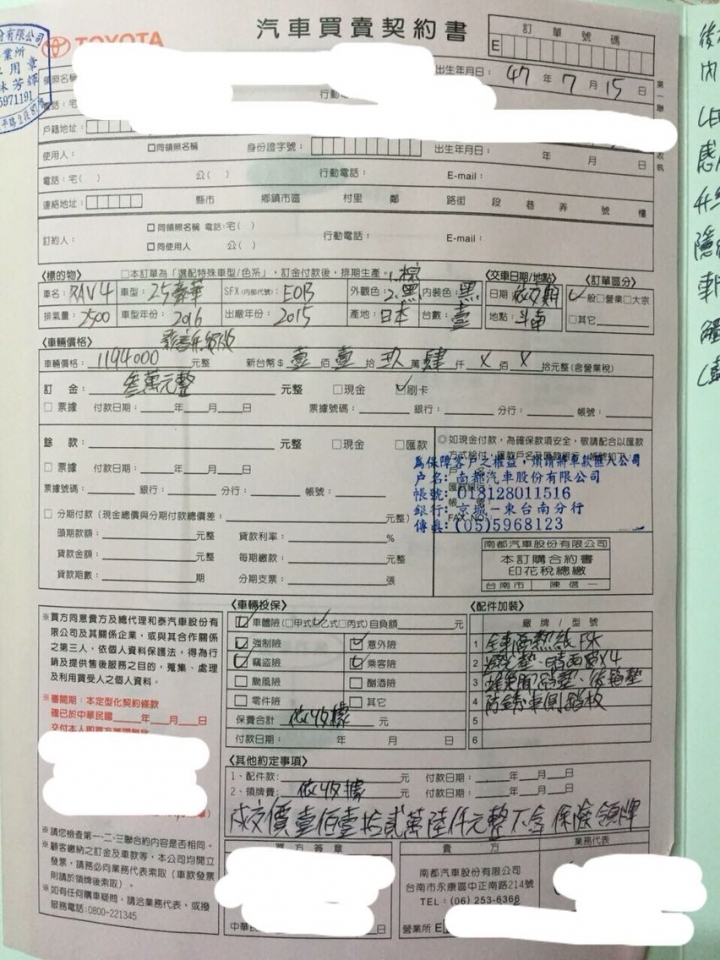 TOYOTA
汽車買賣契約書
訂單號碼
E
出生年月日： 47 年 7 月 15 日
領照名稱
行動電
電話：宅(
戶籍地址：
使用人： □同領照名稱 身份證字號： 出生年月日： 年 月 日
電話：宅( ) 公( ) 行動電話： E-mail：
連絡地址： 縣市 鄉鎮市區 村里 鄰 路街 段 巷 弄 號 樓
訂約人： □同領照名稱 電話：宅( ) 行動電話： E-mail：
□同使用人 公( )
〈標的物〉 □本訂單為「選配特殊車型/色系」，訂金付款後，排期生產。 〈交車日期/地點〉 〈訂單區分〉
車名：RAV4 車型：2.5豪華 SFX(內部代號)：E0B 外觀色：1.棕 2.黑 內裝色：黑 日期：依交期 ☑一般□營業□大宗
排氣量：2500 車型年份：2016 出廠年份：2015 產地：日本 台數：壹 地點：斗南 □其它
〈車輛價格〉
車輛價格：1194000 元整 新台幣$ 壹 佰 壹 拾 玖 萬 肆 仟 X 佰 X 拾元整(含營業稅)
訂 金： 叁萬元整 元整 □現金 ☑刷卡
□票據 付款日期： 年 月 日 票據號碼： 銀行： 分行： 帳號：
餘 款： 元整 □現金 □匯款 ◎如現金付款，為確保款項安全，敬請配合以匯款
□票據 付款日期： 年 月 日
為保障客戶之權益，煩請將車款匯入公司
戶名：南都汽車股份有限公司
票據號碼： 銀行： 分行： 帳號：
帳號：018128011516
銀行：京城－東台南分行
□分期付款（現金總價與分期付款總價差： 元整）
傳真：(05)5968123
頭期款額： 元整 貸款利率： %
貸款金額： 元整 每期繳款： 元整
貸款期數： 期 分期支票： 張
南都汽車股份有限公司
本訂購合約書
印花稅總繳
台南市 陳信一
※買方同意貴方及總代理和泰汽車股份有
限公司及其關係企業，或與其合作關係
之第三人，依個人資料保護法，得為行
銷及提供售後服務之目的，蒐集、處理
及利用買受人之個人資料。
※審閱期：本定型化契約條款
確已於中華民國 年 月 日
〈車輛投保〉
☑車體險(□甲式☑乙式□丙式)自負額 元
☑強制險 ☑意外險
☑竊盜險 ☑乘客險
□颱風險 □酗酒險
□零件險 □其它
保費合計 依收據 元
付款日期： 年 月 日
〈配件加裝〉
廠牌/型號
1 全車隔熱紙FSK
2 避光墊、晴雨窗X4
3
4
5
6
〈其他約定事項〉
1、配件款： 元 付款日期： 年 月 日
2、領牌費： 依收據 元 付款日期： 年 月 日
成交價壹佰壹拾貳萬陸仟元整不含保險領牌
※請您檢查第一、二、三聯合約內容是否相同。
※顧客繳納之訂金及車款等，本公司均開立
發票，請務必向業務代表索取（車款發票
則請於領牌後索取）。
※如有任何購車疑問，請洽業務代表，或撥
服務電話：0800-221345
買方簽章
中華民 日
貴方
南都汽車股份有限公司
台南市永康區中正南路214號
TEL：(06) 253-6366
營業所 E
業務代表